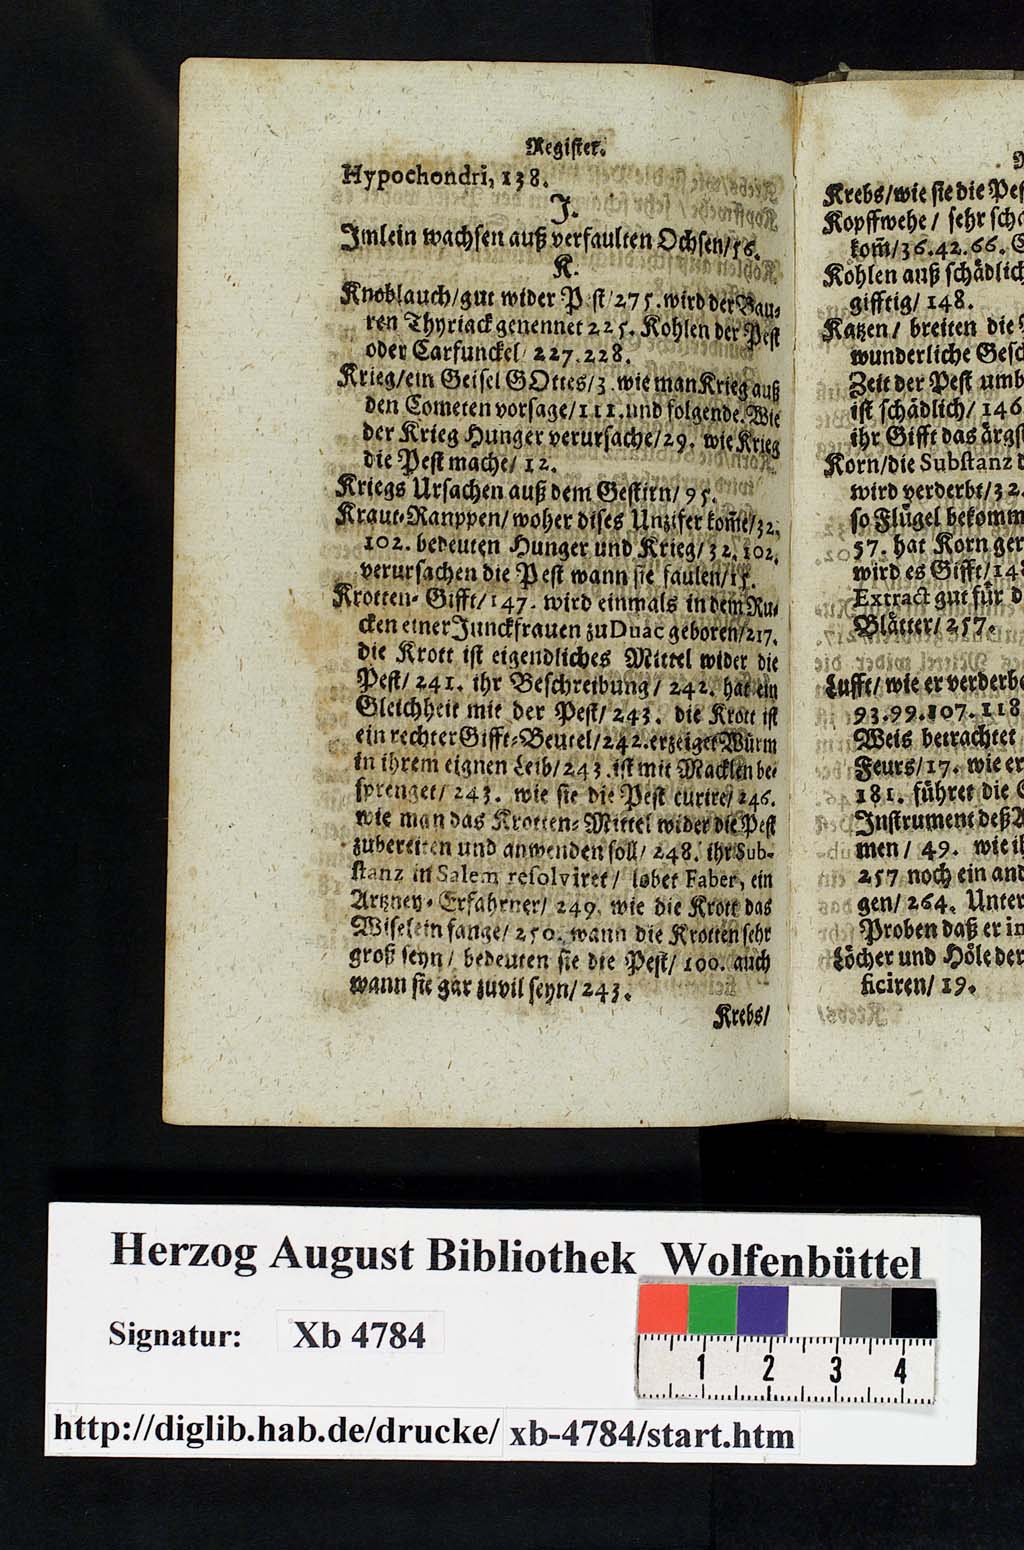 Register.
Hypochondri, 138.
J.
Imlein wachsen auß verfaulten Ochsen/56.
K.
Knoblauch/gut wider P st/275. wird der Bau⸗
ren Thyriack genennet 225. Kohlen der Pest
oder Carfunckel/ 227.228.
Krieg/ein Geisel GOttes/3. wie man Krieg auß
den Cometen vorsage/111. und folgende. Wie
der Krieg Hunger verursache/29. wie Krieg
die Pest mache/ 12.
Kriegs Ursachen auß dem Gestirn/ 95.
Kraut⸗Ranppen/ woher dises Unzifer kom̃e/32.
102. bedeuten Hunger und Krieg/32.102.
verursachen die Pest wann sie faulen/15.
Krotten⸗ Gifft/147. wird einmals in dem Ru⸗
cken einer Junckfrauen zu Duac geboren/217.
die Krott ist eigendliches Mittel wider die
Pest/ 241. ihr Beschreibung/ 242. hat ein
Gleichheit mit der Pest/ 243. die Krott ist
ein rechter Gifft⸗Beutel/242. erzeiget Würm
in ihrem eignen Leib/243. ist mit Macklen be⸗
sprenget/ 243. wie sie die Pest curire/ 246.
wie man das Krotten⸗ Mittel wider die Pest
zubereiten und anwenden soll/ 248. ihr Sub-
stanz in Salem resolviret/ lobet Faber, ein
Artzney⸗ Erfahrner/ 249. wie die Krott das
Wiselein fange/ 250. wann die Krotten sehr
groß seyn/ bedeuten sie die Pest/ 100. auch
wann sie gar zuvil seyn/ 243.
Krebs/
Krebs/wie sie die Pes
Kopffwehe/ sehr sch
kom̃/36.42.66.
Kohlen auß schädlich
gifftig/ 148.
Katzen/ breiten die
wunderliche Gesc
Zeit der Pest umb
ist schädlich/ 146
ihr Gifft das ärgs
Korn/die Substanz
wird verderbt/32.
so Flügel bekomm
57. hat Korn ger
wird es Gifft/148
Extract gut für d
Blätter/ 257.
Lufft/ wie er verderbe
93.99.107.118
Weis betrachtet
Feurs/17. wie er
181. führet die
Instrument deß
men/ 49. wie ih
257 noch ein and
gen/ 264. Unter
Proben daß er in
Löcher und Höle der
ficiren/ 19.
Herzog August Bibliothek Wolfenbüttel
Signatur: Xb 4784
1 2 3 4
http://diglib.hab.de/drucke/ xb-4784/start.htm